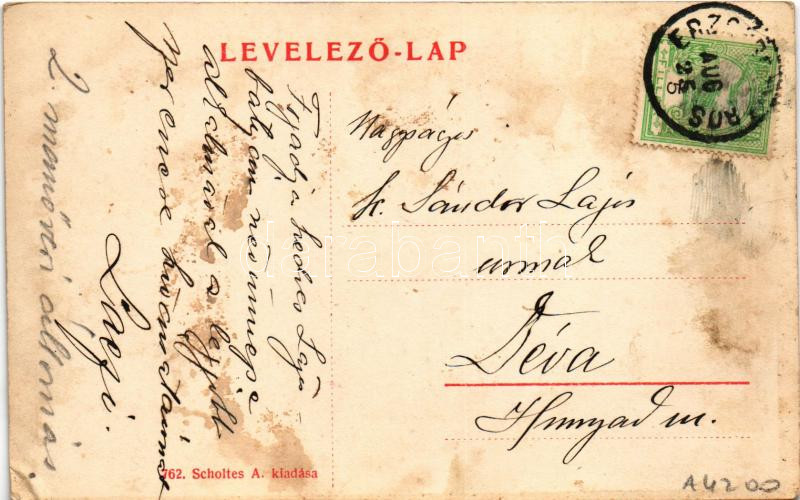 LEVELEZŐ-LAP
Fogadja kedves Lajos
bátyám névünnepe
alkalmával a legjobb
szerencse kívánataimat
Laczi.
2. manőver állomás
Nagyságos
k. Sándor Lajos
urnak
Déva
Hunyad m.
AUG
25
FILL
762. Scholtes A. kiadása
darabanth
A4200